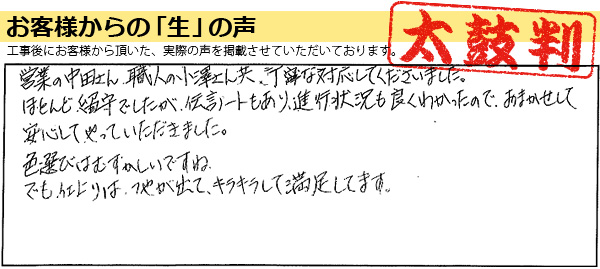 お客様からの「生」の声
太鼓判
工事後にお客様から頂いた、実際の声を掲載させていただいております。
営業の中田さん、職人の小澤さん共、丁寧な対応してくださいました。
ほとんど留守でしたが、伝言ノートもあり、進行状況も良くわかったので、おまかせして
安心してやっていただきました。
色選びはむずかしいですね。
でも、仕上りは、つやが出て、キラキラして満足してます。